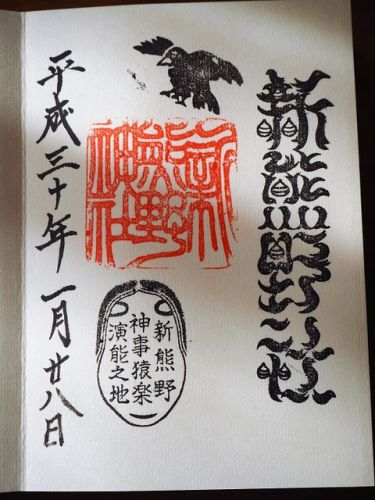 新熊野神社
新
熊野
神社
新熊野
神事猿楽
演能之地
平成三十年一月廿八日